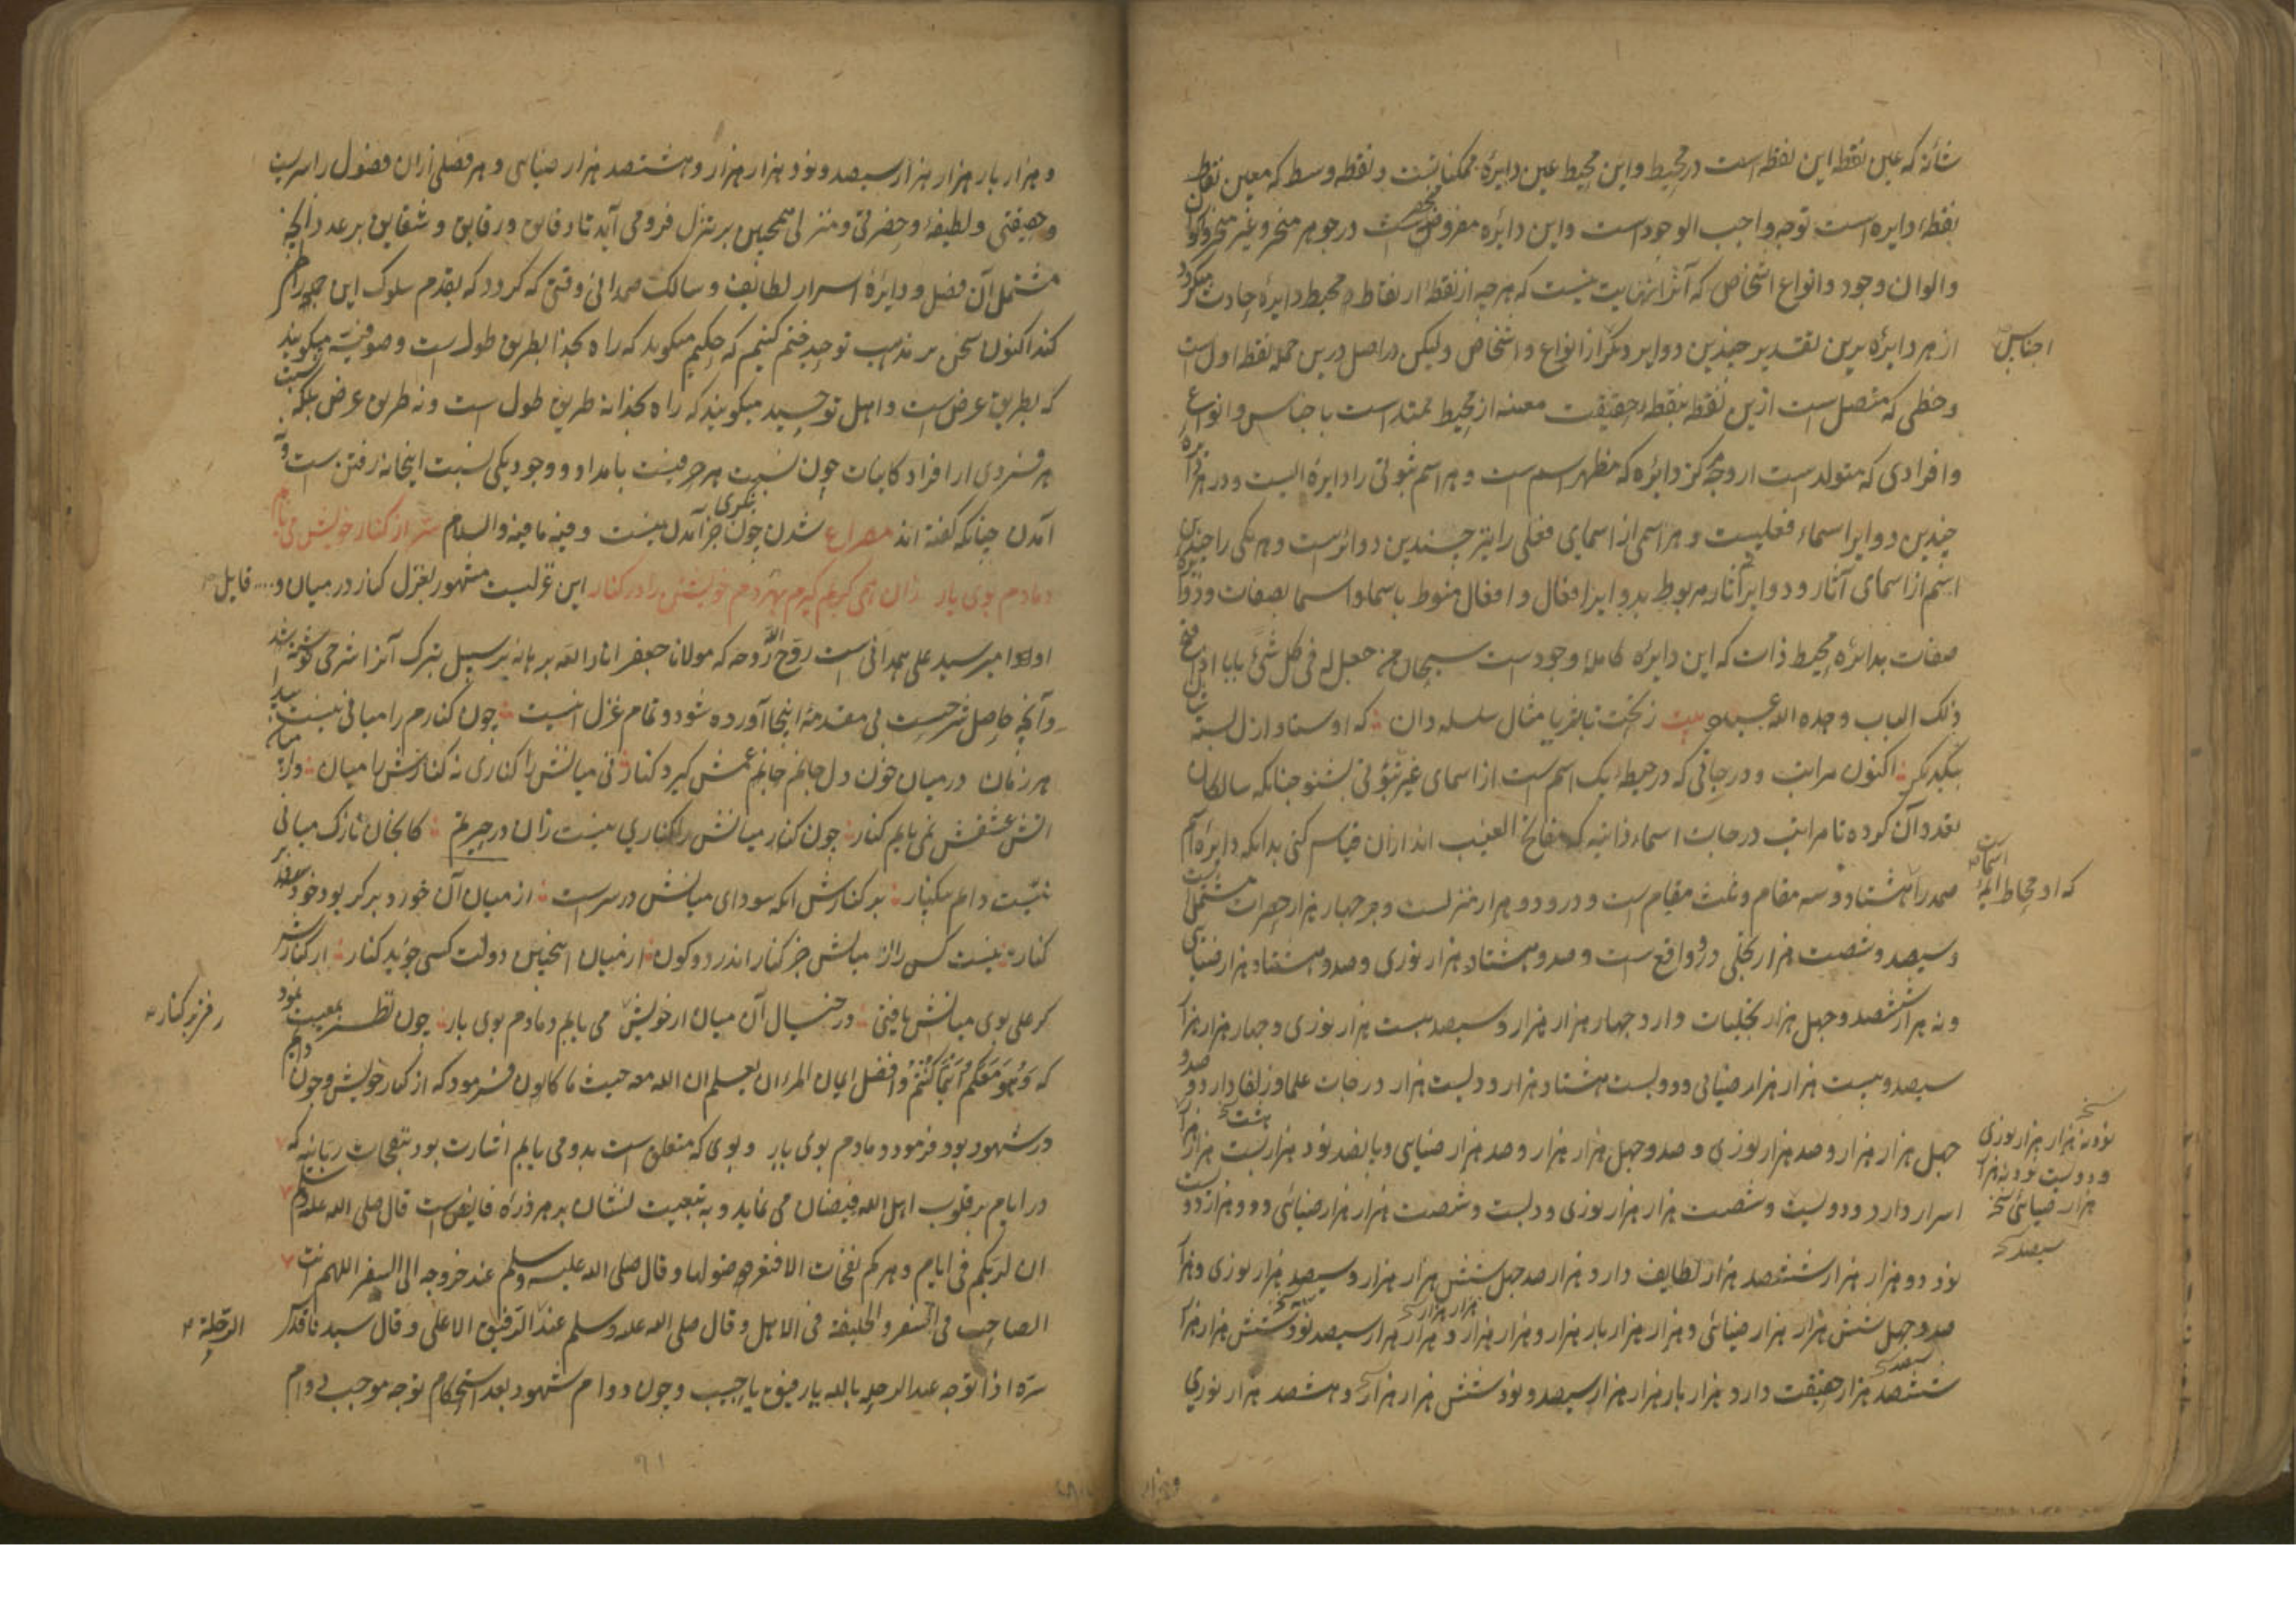 شأنه که عین نقطه این نقطه است در محیط و این محیط عین دایرهٔ ممکناتست و نقطه وسط که معین نقاط
نقطهٔ دایره است توجه واجب الوجود است و این دایره مفروض است در جوهر متحیز و غیر متحیز و اکوان
والوان وجود و انواع اشخاص که آنرا نهایت نیست که هرچه از نقطهٔ از نقاط محیط دایرهٔ حادث میگردد
از هر دایرهٔ برین تقدیر چندین دوایر دیگر از انواع و اشخاص ولیکن در اصل درین جمله نقطه اول است
اجناس
وخطی که متصل است ازین نقطه بنقطه حقیقت معینه از محیط ممتد است باجناس و انواع
وافرادی که متولد است از وجه مرکز دایره که مظهر اسم است و هر اسم ثبوتی را دایره ایست و در هر دایره
چندین دوایر اسماء فعلیست و هر اسمی از اسمای فعلی را نیز چندین دوائرست و هر یکی را چندین
اسم از اسمای آثار و دوایر آثار مربوط بدوایر افعال و افعال منوط باسما و اسما بصفات و دوایر
صفات بدایرهٔ محیط ذات که این دایره کاملهٔ وجود است سبحان من جعل له فی کل شیٔ بابا
ذلک الباب وجده الله عنده بیت ز تخت تا بثریا مثال سلسله دان که اوستاد ازل بسته
بیکدیگر اکنون مراتب و درجاتی که در حیطهٔ یک اسم است از اسمای غیر ثبوتی بشنو چنانکه سالکان
تعداد آن کرده تا مراتب درجات اسماء ذاتیه که مفاتح الغیب اند ازان قیاس کنی بدانکه دایرهٔ اسم
که او محاط اسمای
صمد را هشتاد و سه مقام و ثلث مقام است و درو دو هزار منزلست و بر چهار هزار حضرات مشتمل است
وسیصد و شصت هزار تجلی درو واقع است وصد و هشتاد هزار نوری وصد و هشتاد هزار ضیائی
و نه هزار ششصد و چهل هزار تجلیات دارد چهار هزار هزار و سیصد بیست هزار نوری و چهار هزار هزار
سیصد و بیست هزار هزار ضیائی و دویست هشتاد هزار و دویست هزار درجات علما و زلفا دارد و صد و
چهل هزار هزار و صد هزار نوری و صد و چهل هزار هزار و صد هزار ضیائی و پانصد نود هزار بیست هزار
نسخه نود نه هزار هزار نوری
و دویست نود نه هزار
هزار ضیائی نسخه
اسرار دارد و دویست و شصت هزار هزار نوری و دویست و شصت هزار هزار ضیائی و دو هزار دویست
سیصد نسخه
نود دو هزار هزار ششصد هزار لطایف دارد هزار صد چهل شش هزار هزار و سیصد هزار نوری و هزار
صد و چهل شش هزار هزار ضیائی و هزار هزار بار هزار و هزار هزار و هزار هزار سیصد نود شش هزار هزار
ششصد هزار حقیقت دارد هزار بار هزار هزار سیصد و نود شش هزار هزار و هشصد هزار نوری
و هزار
و هزار بار هزار هزار سیصد و نود هزار هزار و هشتصد هزار ضیائی و هر فصلی ازان فصول را سریست
وحقیقتی و لطیفهٔ و حضرتی و منزلی همچنین بر تنزل فرومی آید تا دقایق و رقایق و شقایق هر عدد آنچه
مشتمل آن فصل و دایرهٔ اسرار لطایف و سالک صمدانی وقتی که گردد که بقدم سلوک این جمله را طی
کند اکنون سخن بر مذهب توحید ختم کنیم که حکیم میگوید که راه بخدا بطریق طول است و صوفیه میگویند
که بطریق عرض است و اهل توحید میگویند که راه بخدا نه طریق طول است و نه طریق عرض بلکه نسبت
هر فردی از افراد کاینات چون نسبت هر حرفیست بامداد و وجود یکی نسبت اینجا نه رفتن است و نه
آمدن چنانکه گفته اند مصراع شدن چون بنگری جز آمدن نیست و فیه ما فیه والسلام شعر از کنار خویش می یابم
دمادم بوی یار زان همی گیرم بهر دم خویشتن را در کنار این غزلیست مشهور بغزل کنار در میان و .... قایل
او امیر سید علی همدانی است روح الله روحه که مولانا جعفر انار الله برهانه بر سبیل تبرک آنرا شرحی نوشته شد
وآنچه حاصل شرحست بی مقدمهٔ اینجا آورده شود و تمام غزل اینست چون کنارم را میانی نیست پیدا
هر زمان در میان خون دل جانم غمش گیرد کنار نی میانش را کناری نه کنارش را میان
آتش عشقش نمی یابم کنار چون کنار میانش را کناری نیست زان در حیرتم کانچنان نازک میانی
نیست دایم بر کنار بر کنارش آنکه سودای میانش در سرست از میان آن خورد بر کز بود خود
کنار نیست کس را از میانش جز کنار اندر دو کون از میان اینچنین دولت کسی جوید کنار از کنارش
گر علی بوی میانش یافتی در خیال آن میان از خویش می یابم دمادم بوی یار چون نظر بمعیت بود
رفتی بر کنار
که وَهُوَ مَعَكُمْ أَيْنَمَا كُنتُمْ وافضل ایمان المرء ان یعلم ان الله معه حیث ما کان فرمود که از کنار خویش و چون دایم
در شهود بود فرمود دمادم بوی یار و بوی که متعلق است بدو می یابم اشارت بود بنفحات ربانیه که
در ایام بر قلوب اهل الله فیضان می نماید و به تبعیت نشان بر هر ذره فایض است قال صلی الله علیه وسلم
ان لربکم فی ایام دهرکم نفحات الا فتعرضوا لها وقال صلی الله علیه وسلم عند خروجه الی السفر اللهم انت
الصاحب فی السفر والخلیفة فی الاهل وقال صلی الله علیه وسلم عند الرفیق الاعلی وقال سید نا قدس
الرحلة
سره اذا توجه عبد الرحله بالله یا رفیق یا حبیب و چون دوام شهود بعد استحکام توجه موجب دوام
۹۱